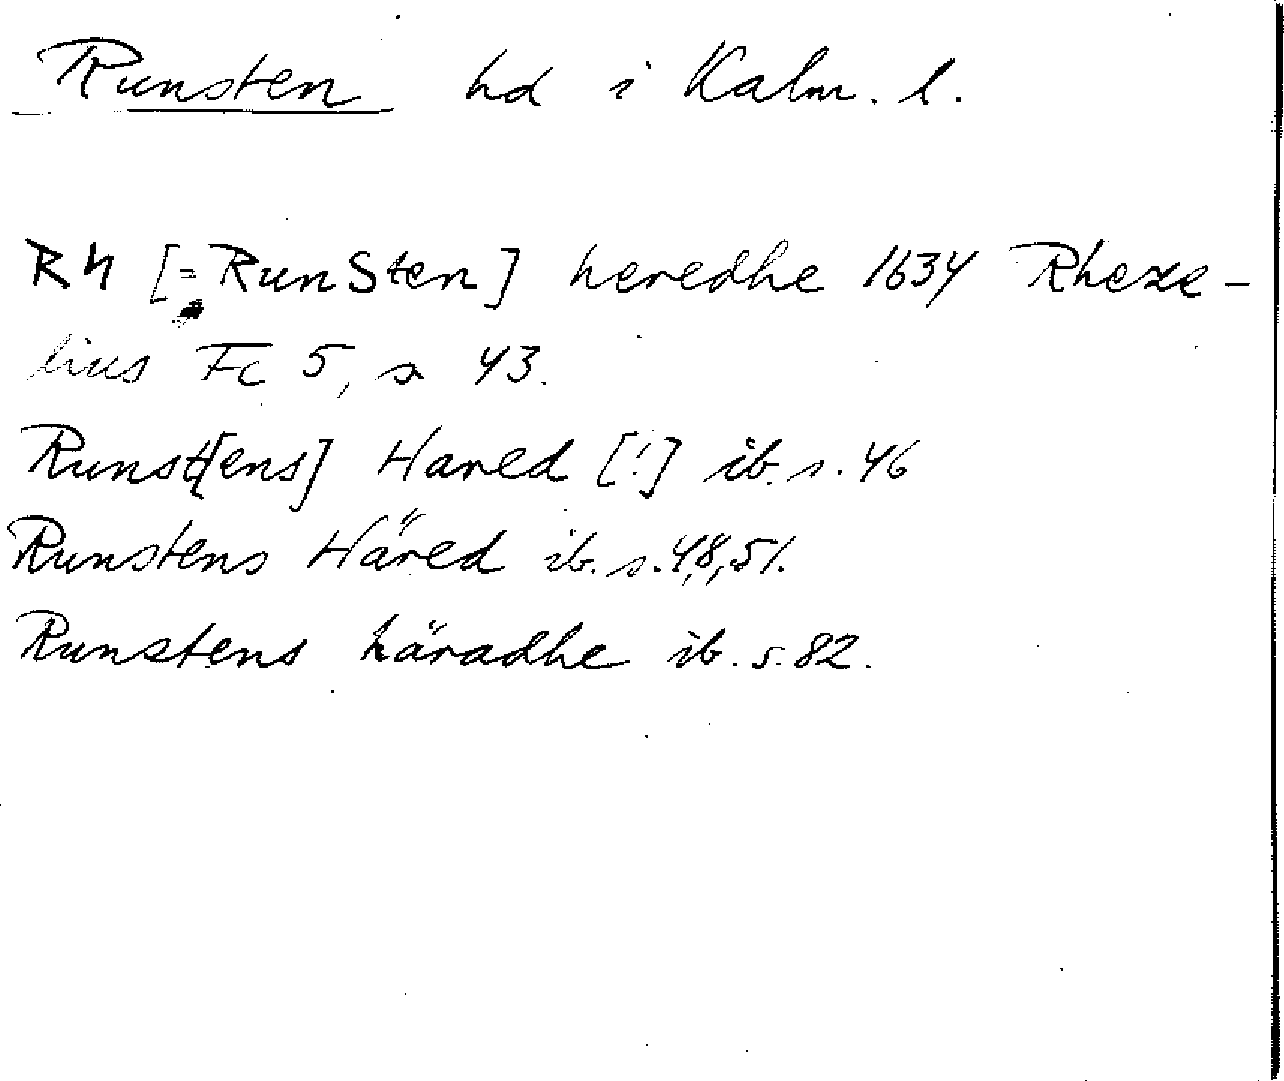 Runsten hd i Kalm. l.
Rᛋ [= RunSten] heredhe 1634 Rhexe-
lius Fc 5, s 43.
Runst[ens] Hared [!] ib. s. 46
Runstens Häred ib. s. 48, 51.
Runstens häradhe ib. s. 82.